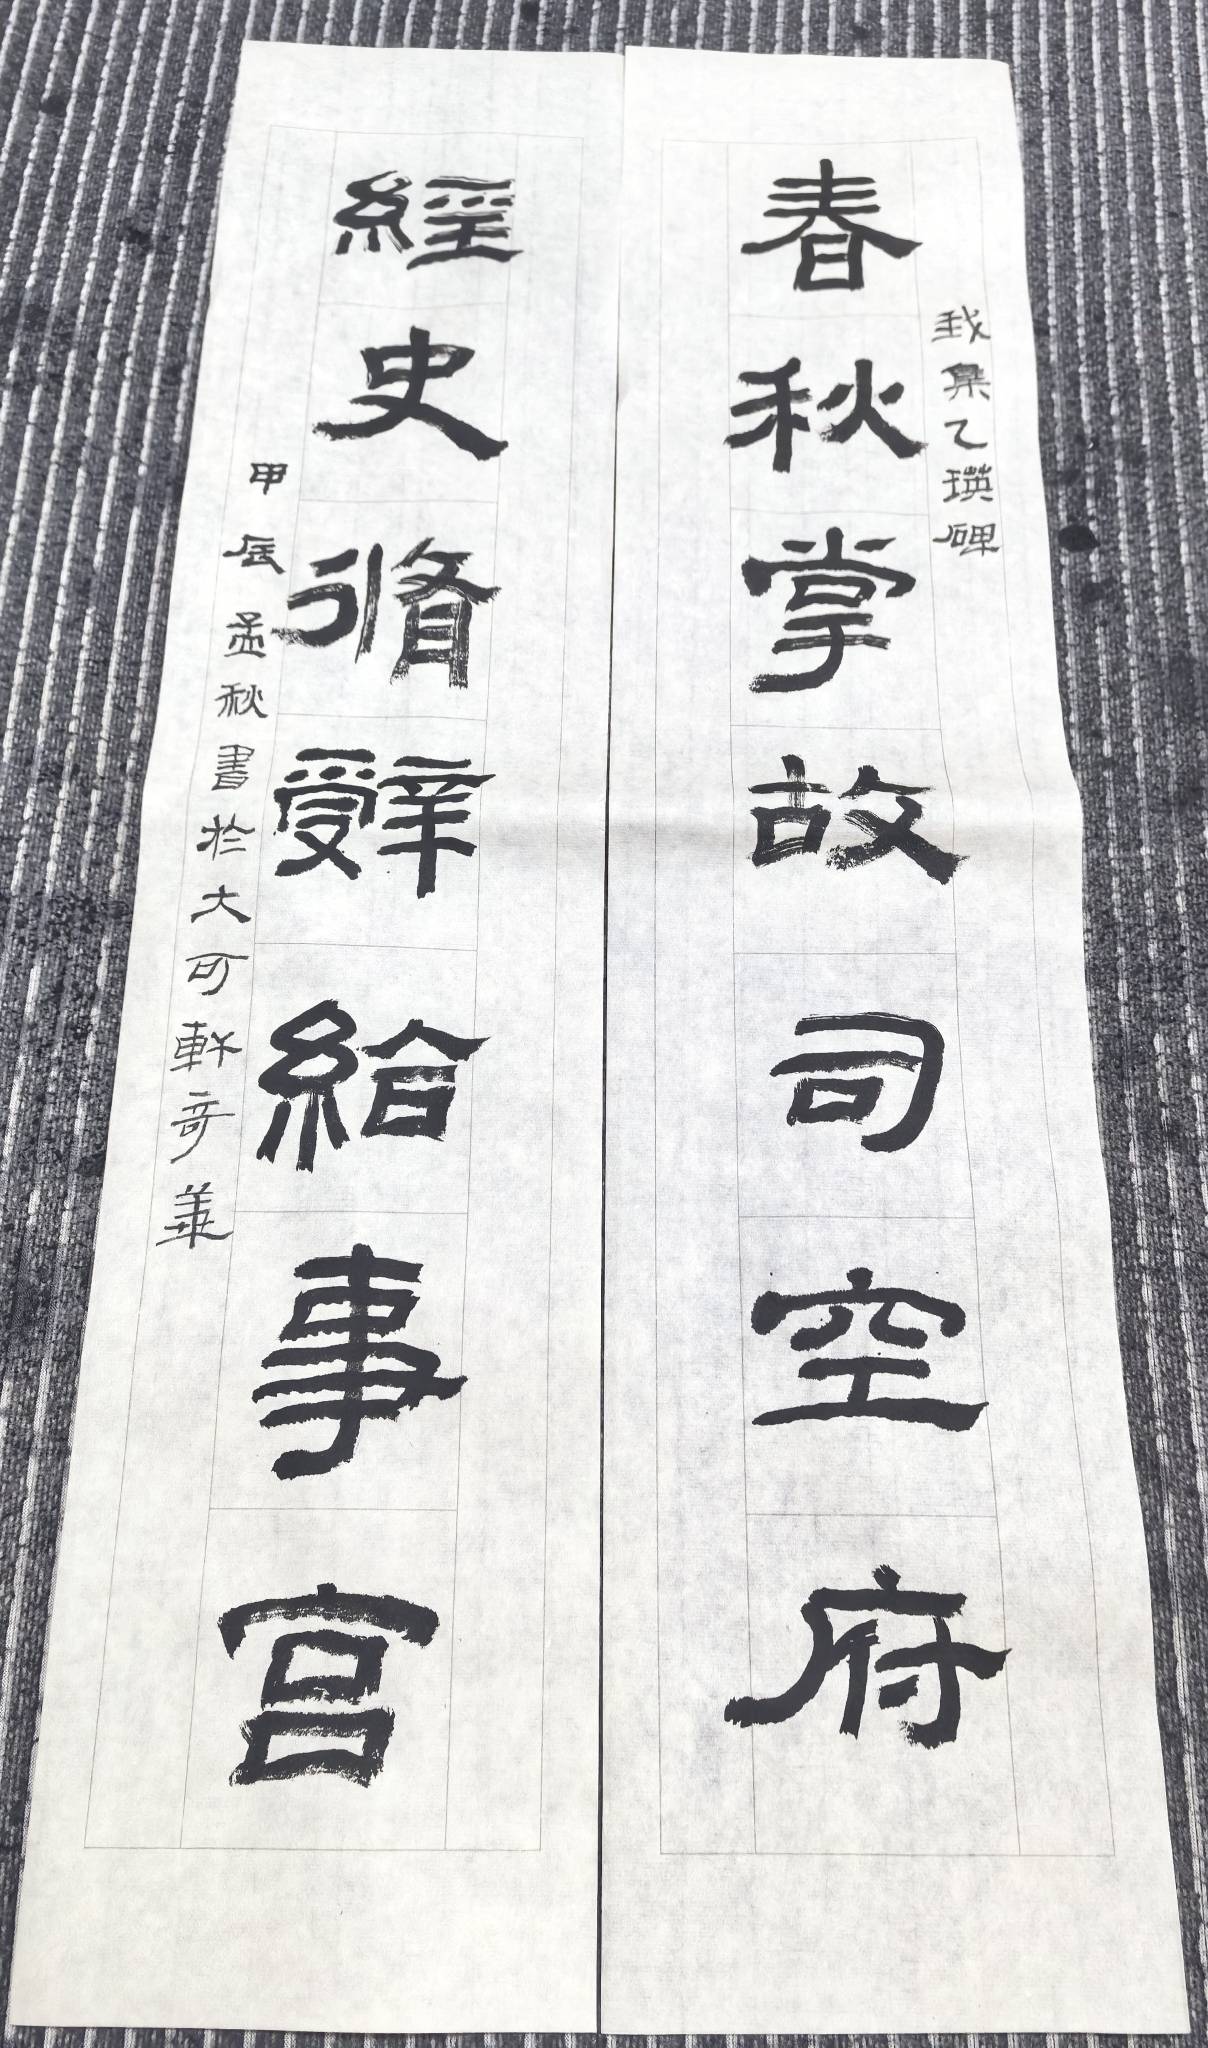 我集乙瑛碑
春秋掌故司空府
經史脩辭給事宮
甲辰孟秋書於大可軒奇